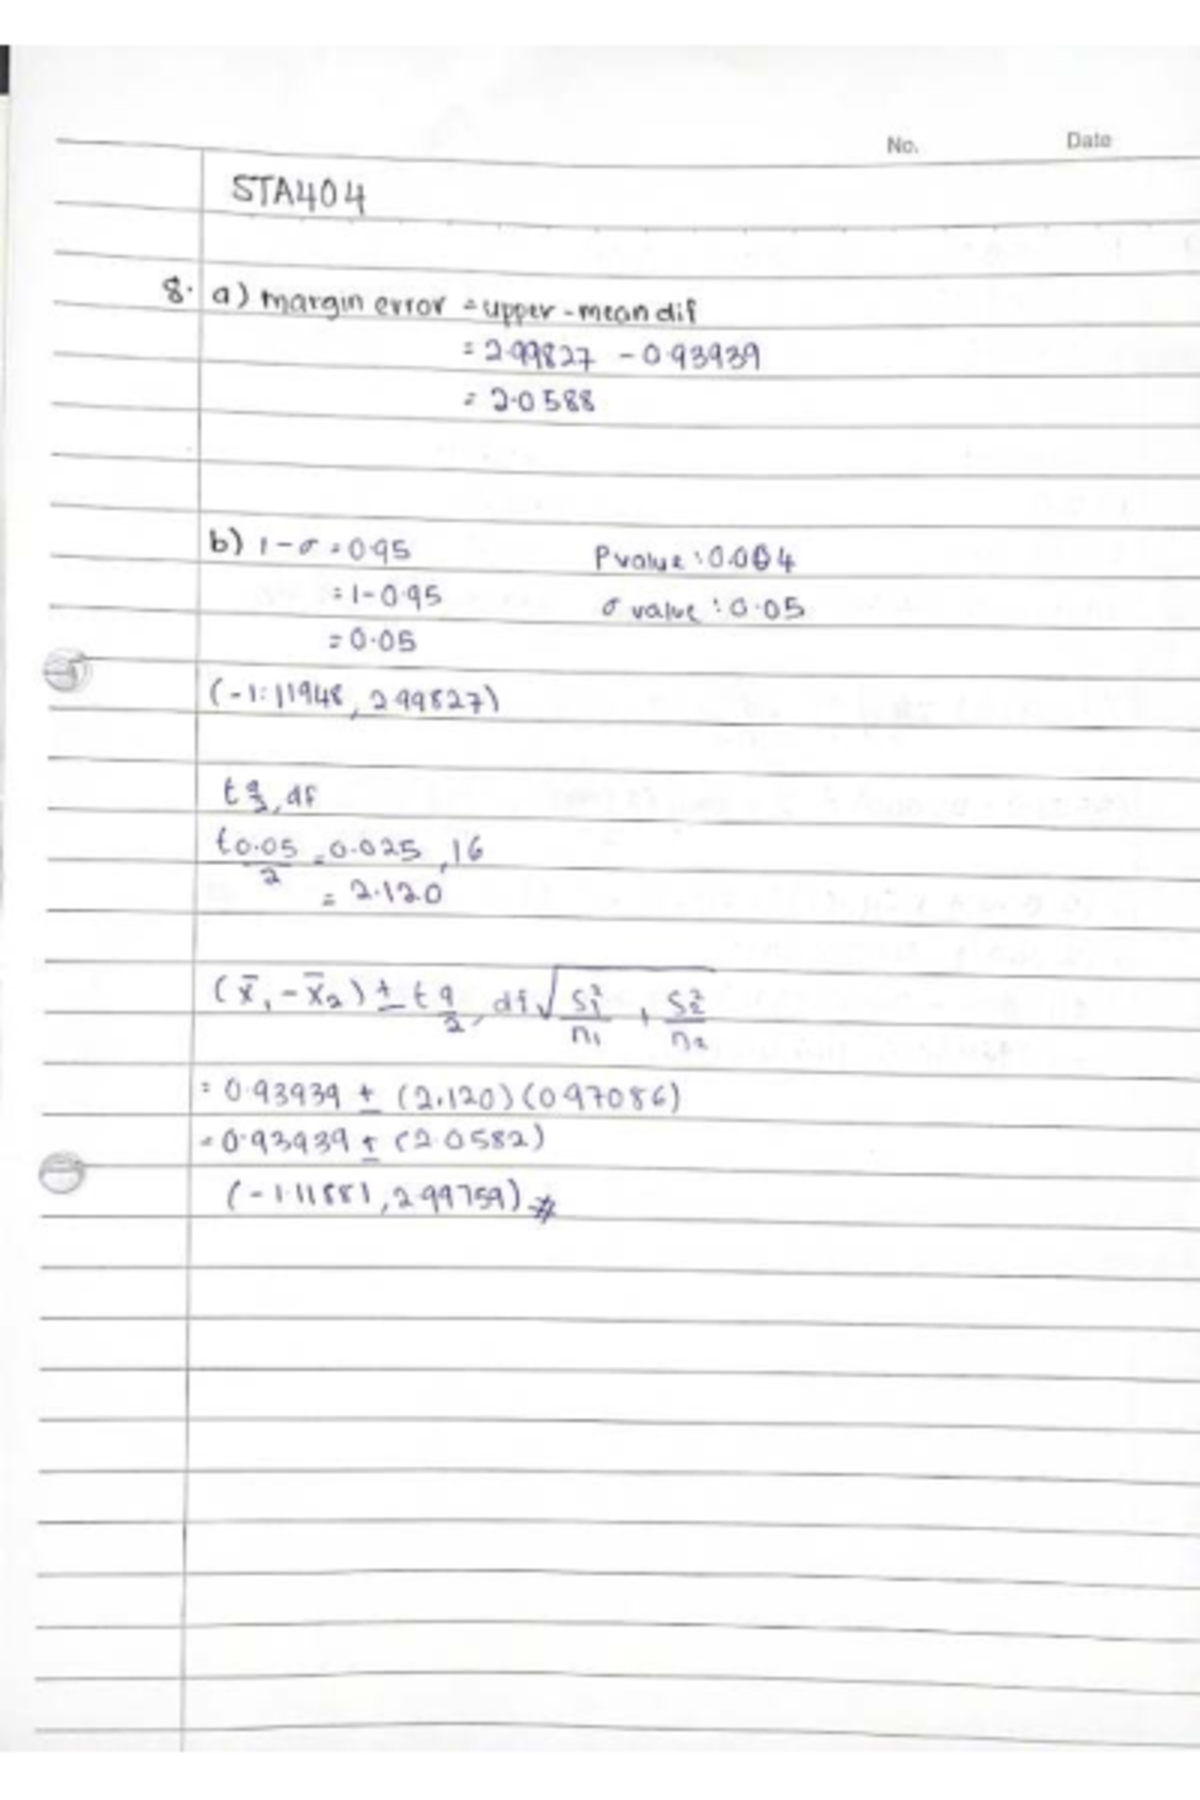 No. Date
STA404
8. a) margin error = upper - mean dif
= 2.99827 - 0.93939
= 2.0588
b) 1 - σ = 0.95 P value : 0.004
= 1 - 0.95 σ value : 0.05
= 0.05
(-1.11948, 2.99827)
t α/2, df
t 0.05/2 = 0.025, 16
= 2.120
(x̄₁ - x̄₂) ± t α/2, df √ S₁²/n₁ + S₂²/n₂
= 0.93939 ± (2.120)(0.97086)
= 0.93939 ± (2.0582)
(-1.11881, 2.99759) #